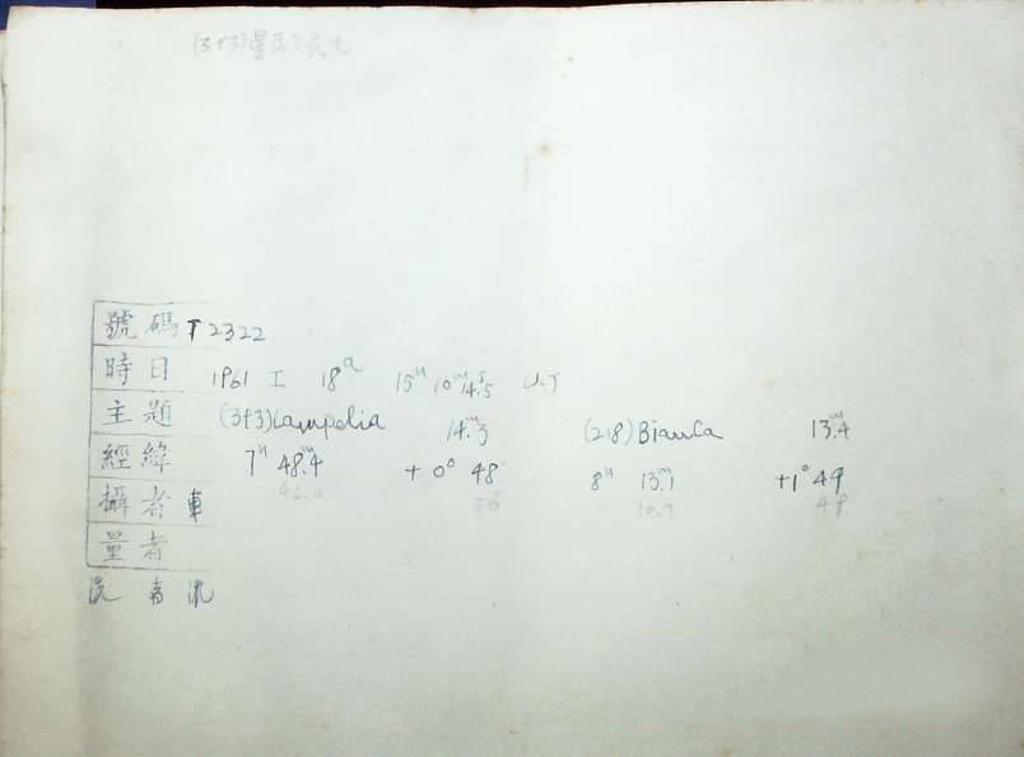 號碼 T 2322
時日 1961 I 18ᵈ 15ʰ 10ᵐ 14ˢ.5 U.T
主題 (393) Lampelia 14ᵐ.3 (218) Bianca 13ᵐ.4
經緯 7ʰ 48ᵐ.4 +0° 48 8ʰ 13ᵐ.1 +1° 49
46.0 56 10.9 48
攝者 車
量者
洗者